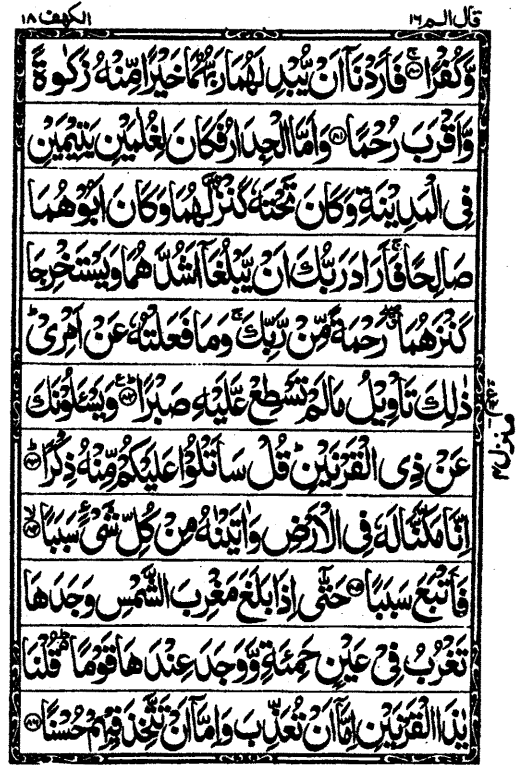 قال الم ١٦ الكهف ١٨
وَّكُفْرًا ۚ﴿۸۰﴾ فَاَرَدْنَاۤ اَنْ يُّبْدِلَهُمَا رَبُّهُمَا خَيْرًا مِّنْهُ زَكٰوةً
وَّاَقْرَبَ رُحْمًا ﴿۸۱﴾ وَاَمَّا الْجِدَارُ فَكَانَ لِغُلٰمَيْنِ يَتِيْمَيْنِ
فِى الْمَدِيْنَةِ وَكَانَ تَحْتَهٗ كَنْزٌ لَّهُمَا وَكَانَ اَبُوْهُمَا
صَالِحًا ۚ فَاَرَادَ رَبُّكَ اَنْ يَّبْلُغَاۤ اَشُدَّهُمَا وَيَسْتَخْرِجَا
كَنْزَهُمَا ۖ رَحْمَةً مِّنْ رَّبِّكَ ۚ وَمَا فَعَلْتُهٗ عَنْ اَمْرِىْ ؕ
ذٰلِكَ تَاْوِيْلُ مَا لَمْ تَسْطِعْ عَّلَيْهِ صَبْرًا ؕ﴿۸۲﴾ وَيَسْـَٔلُوْنَكَ
عَنْ ذِى الْقَرْنَيْنِ ؕ قُلْ سَاَتْلُوْا عَلَيْكُمْ مِّنْهُ ذِكْرًا ؕ﴿۸۳﴾
اِنَّا مَكَّنَّا لَهٗ فِى الْاَرْضِ وَاٰتَيْنٰهُ مِنْ كُلِّ شَىْءٍ سَبَبًا ۙ﴿۸۴﴾
فَاَتْبَعَ سَبَبًا ﴿۸۵﴾ حَتّٰٓى اِذَا بَلَغَ مَغْرِبَ الشَّمْسِ وَجَدَهَا
تَغْرُبُ فِىْ عَيْنٍ حَمِئَةٍ وَّوَجَدَ عِنْدَهَا قَوْمًا ؕ قُلْنَا
يٰذَا الْقَرْنَيْنِ اِمَّاۤ اَنْ تُعَذِّبَ وَاِمَّاۤ اَنْ تَتَّخِذَ فِيْهِمْ حُسْنًا ﴿۸۶﴾
منزل ۴